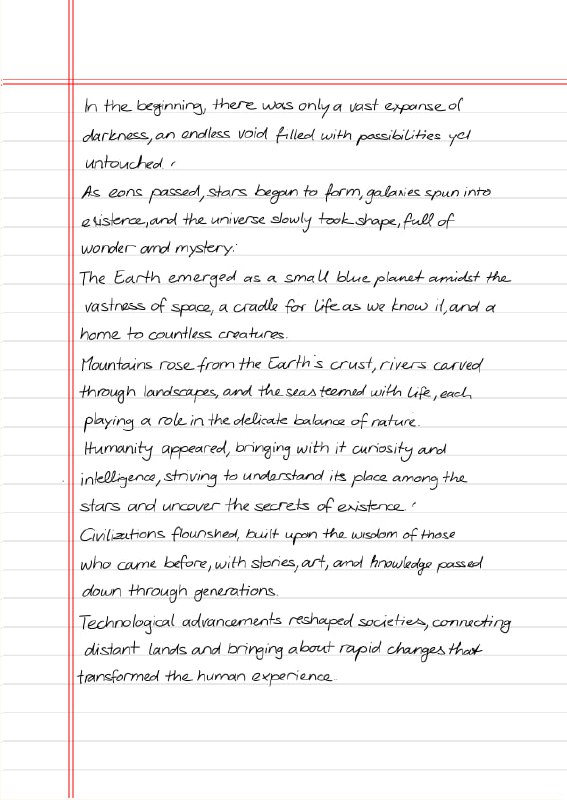 In the beginning, there was only a vast expanse of
darkness, an endless void filled with possibilities yet
untouched.
As eons passed, stars began to form, galaxies spun into
existence, and the universe slowly took shape, full of
wonder and mystery.
The Earth emerged as a small blue planet amidst the
vastness of space, a cradle for life as we know it, and a
home to countless creatures.
Mountains rose from the Earth's crust, rivers carved
through landscapes, and the seas teemed with life, each
playing a role in the delicate balance of nature.
Humanity appeared, bringing with it curiosity and
intelligence, striving to understand its place among the
stars and uncover the secrets of existence.
Civilizations flourished, built upon the wisdom of those
who came before, with stories, art, and knowledge passed
down through generations.
Technological advancements reshaped societies, connecting
distant lands and bringing about rapid changes that
transformed the human experience.